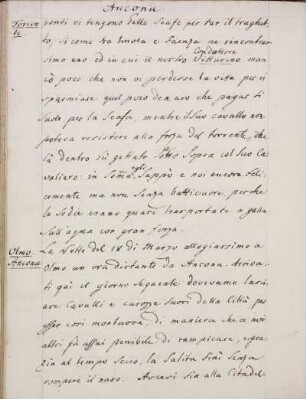 Ancona
Torren-
te.
ponti vi tengono delle Scafe per dar il traghet-
to, si come tra Imola e Faenza ne rincontras-
simo uno ed in cui il nostro Vetturino man
Conduttore
cò poco che non vi perdesse la vita per ri
sparmiare quel poco denaro che pagar si
suole per la Scafa mentre il suo cavallo non
poteva resistere alla forza del torrente, che
là dentro fù gettato sotto Sopra col suo Ca-
valiere: in Soma egli Scappò e noi ancora feli-
cemente ma non Senza batticuore, perche
le Sedie erano quasi trasportate a galla
Sull'aqua con gran forza.
Olmo.
Ancona.
La Notte del 18 di Marzo allogiassimo a
Olmo un ora distante da Ancona. Arriva-
ti quì il giorno Seguente dovevamo lasci-
are Cavalli e carozze fuori della Città per
esser così montuosa, di maniera che a noi
altri fù assai penibile di rampicare, e gra-
zia al tempo Secco, la Salita finì Senza
rompere il naso. Arrivi sin alla Citadel-